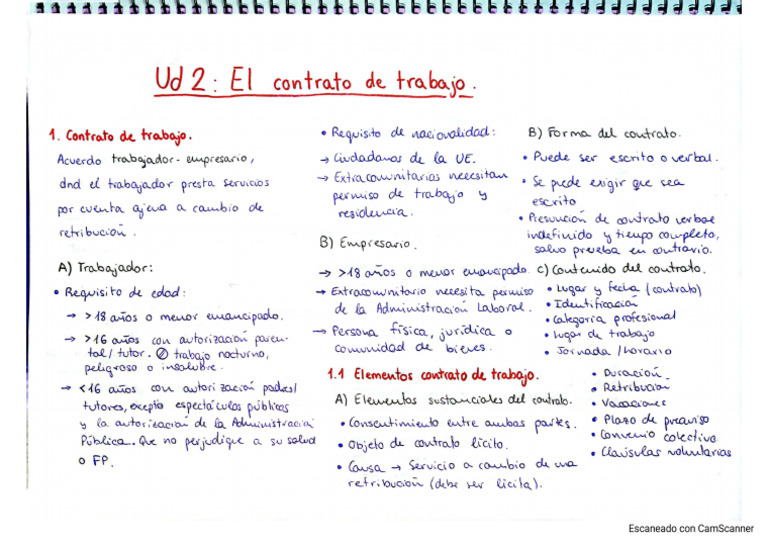 Ud 2: El contrato de trabajo.
1. Contrato de trabajo.
Acuerdo trabajador-empresario,
dnd el trabajador presta servicios
por cuenta ajena a cambio de
retribución.
A) Trabajador:
• Requisito de edad:
→ >18 años o menor emancipado.
→ >16 años con autorización paren-
tal/tutor. trabajo nocturno,
peligroso o insalubre.
→ <16 años con autorización padres/
tutores, excepto espectáculos públicos
y la autorización de la Administración
Pública. Que no perjudique a su salud
o FP.
• Requisito de nacionalidad:
→ Ciudadanos de la UE.
→ Extracomunitarios necesitan
permiso de trabajo y
residencia.
B) Empresario.
→ >18 años o menor emancipado.
→ Extracomunitario necesita permiso
de la Administración Laboral.
→ Persona física, jurídica o
comunidad de bienes.
1.1 Elementos contrato de trabajo.
A) Elementos sustanciales del contrato.
• Consentimiento entre ambas partes.
• Objeto de contrato lícito.
• Causa → Servicio a cambio de una
retribución (debe ser lícita).
B) Forma del contrato.
• Puede ser escrito o verbal.
• Se puede exigir que sea
escrito
• Presunción de contrato verbal
indefinido y tiempo completo,
salvo prueba en contrario.
C) Contenido del contrato.
• Lugar y fecha (contrato)
• Identificación
• Categoría profesional
• Lugar de trabajo
• Jornada/horario
• Duración
• Retribución
• Vacaciones
• Plazo de preaviso
• Convenio colectivo
• Cláusulas voluntarias
Escaneado con CamScanner